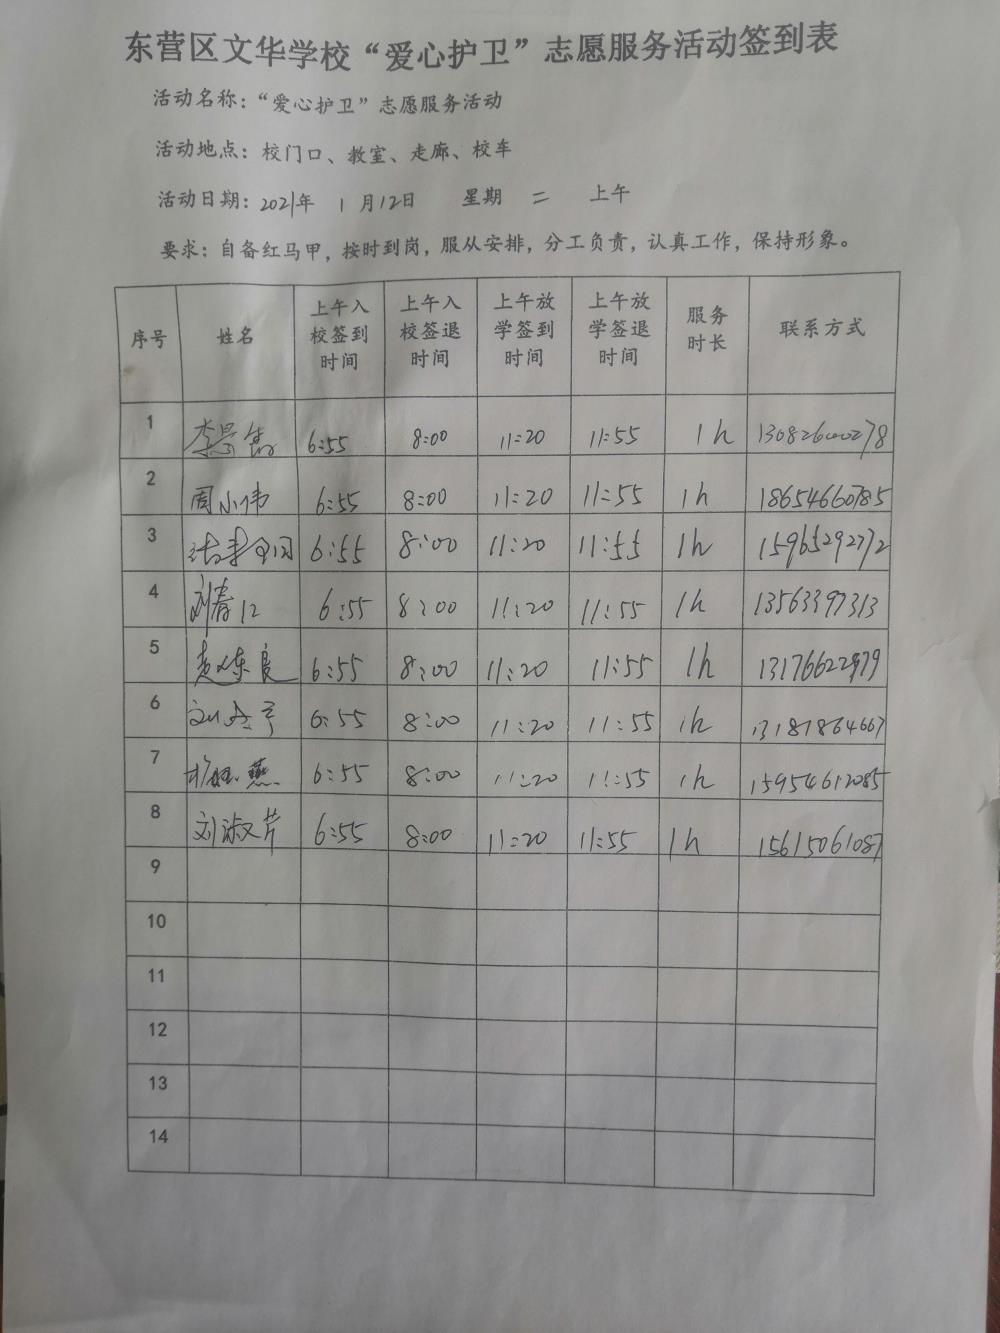 东营区文华学校“爱心护卫”志愿服务活动签到表
活动名称：“爱心护卫”志愿服务活动
活动地点：校门口、教室、走廊、校车
活动日期：2021年 1月12日 星期 二 上午
要求：自备红马甲，按时到岗，服从安排，分工负责，认真工作，保持形象。
序号 姓名 上午入校签到时间 上午入校签退时间 上午放学签到时间 上午放学签退时间 服务时长 联系方式
1 李景 6:55 8:00 11:20 11:55 1h
2 周小伟 6:55 8:00 11:20 11:55 1h 18654660785
3 6:55 8:00 11:20 11:55 1h 15965292772
4 刘春 6:55 8:00 11:20 11:55 1h 13563397313
5 6:55 8:00 11:20 11:55 1h
6 6:55 8:00 11:20 11:55 1h 13181864667
7 燕 6:55 8:00 11:20 11:55 1h 15954612085
8 刘淑芹 6:55 8:00 11:20 11:55 1h 15615061087
9
10
11
12
13
14